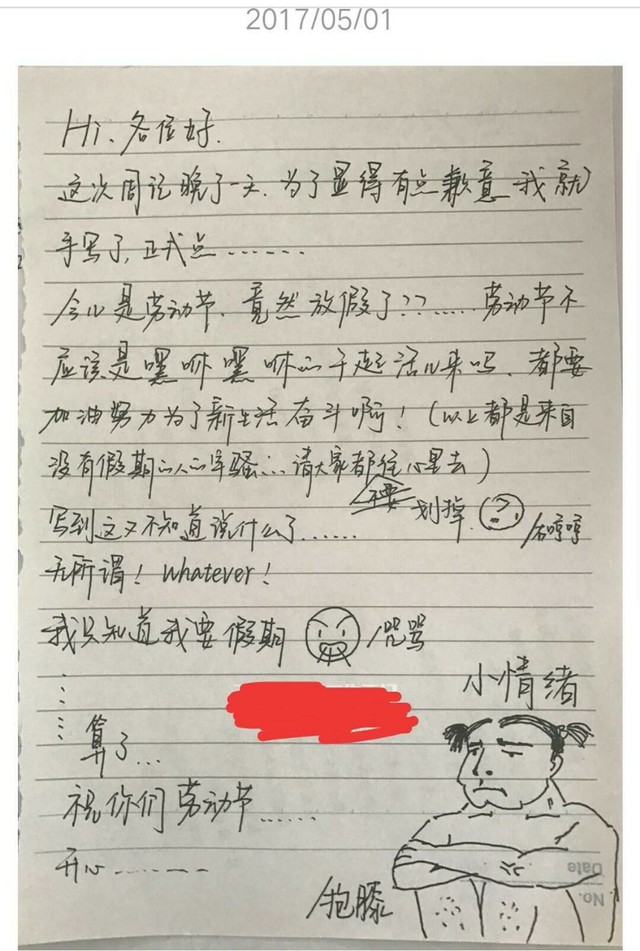 2017/05/01
Hi、各位好.
这次周记晚了一天.为了显得有点歉意 我就
手写了,正式点......
今儿是劳动节.竟然放假了??.....劳动节不
应该是嘿咻嘿咻的干起活儿来吗.都要
加油努力为了新生活奋斗啊!(以上都是来自
没有假期的人的牢骚...请大家都往心里去)
不要 划掉.
写到这又不知道说什么了......
/右哼哼
无所谓! whatever!
我只知道我要假期 /咒骂
小情绪
......
算了...
祝你们劳动节......
开心.......
/抱膝
Date
No.